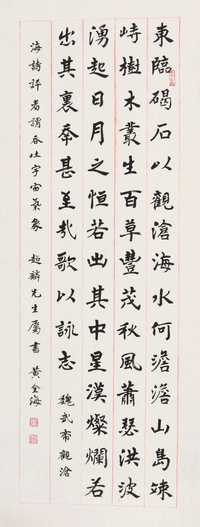 東臨碣石以觀滄海水何澹澹山島竦
峙樹木叢生百草豐茂秋風蕭瑟洪波
湧起日月之恒若出其中星漢燦爛若
出其裏幸甚至哉歌以詠志 魏武帝觀滄
海詩評者謂吞吐宇宙氣象 超麟先生屬書 黃海